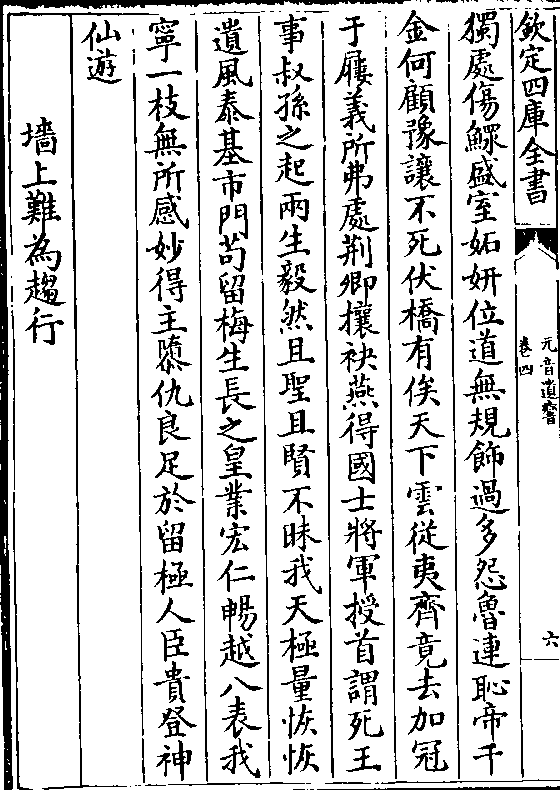 欽定四庫全書
元音遺響
卷四
六
獨處傷鰥盛室妬妍位道無規飾過多怨魯連恥帝千
金何顧豫讓不死伏橋有俟天下雲從夷齊竟去加冠
于屨義所弗處荆卿攘袂燕得國士將軍授首謂死王
事叔孫之起兩生毅然且聖且賢不昧我天極量恢恢
遺風泰基市門苟留梅生長之皇業宏仁暢越八表我
寧一枝無所感妙得主隳仇良足於留極人臣貴登神
仙遊
墻上難為趨行